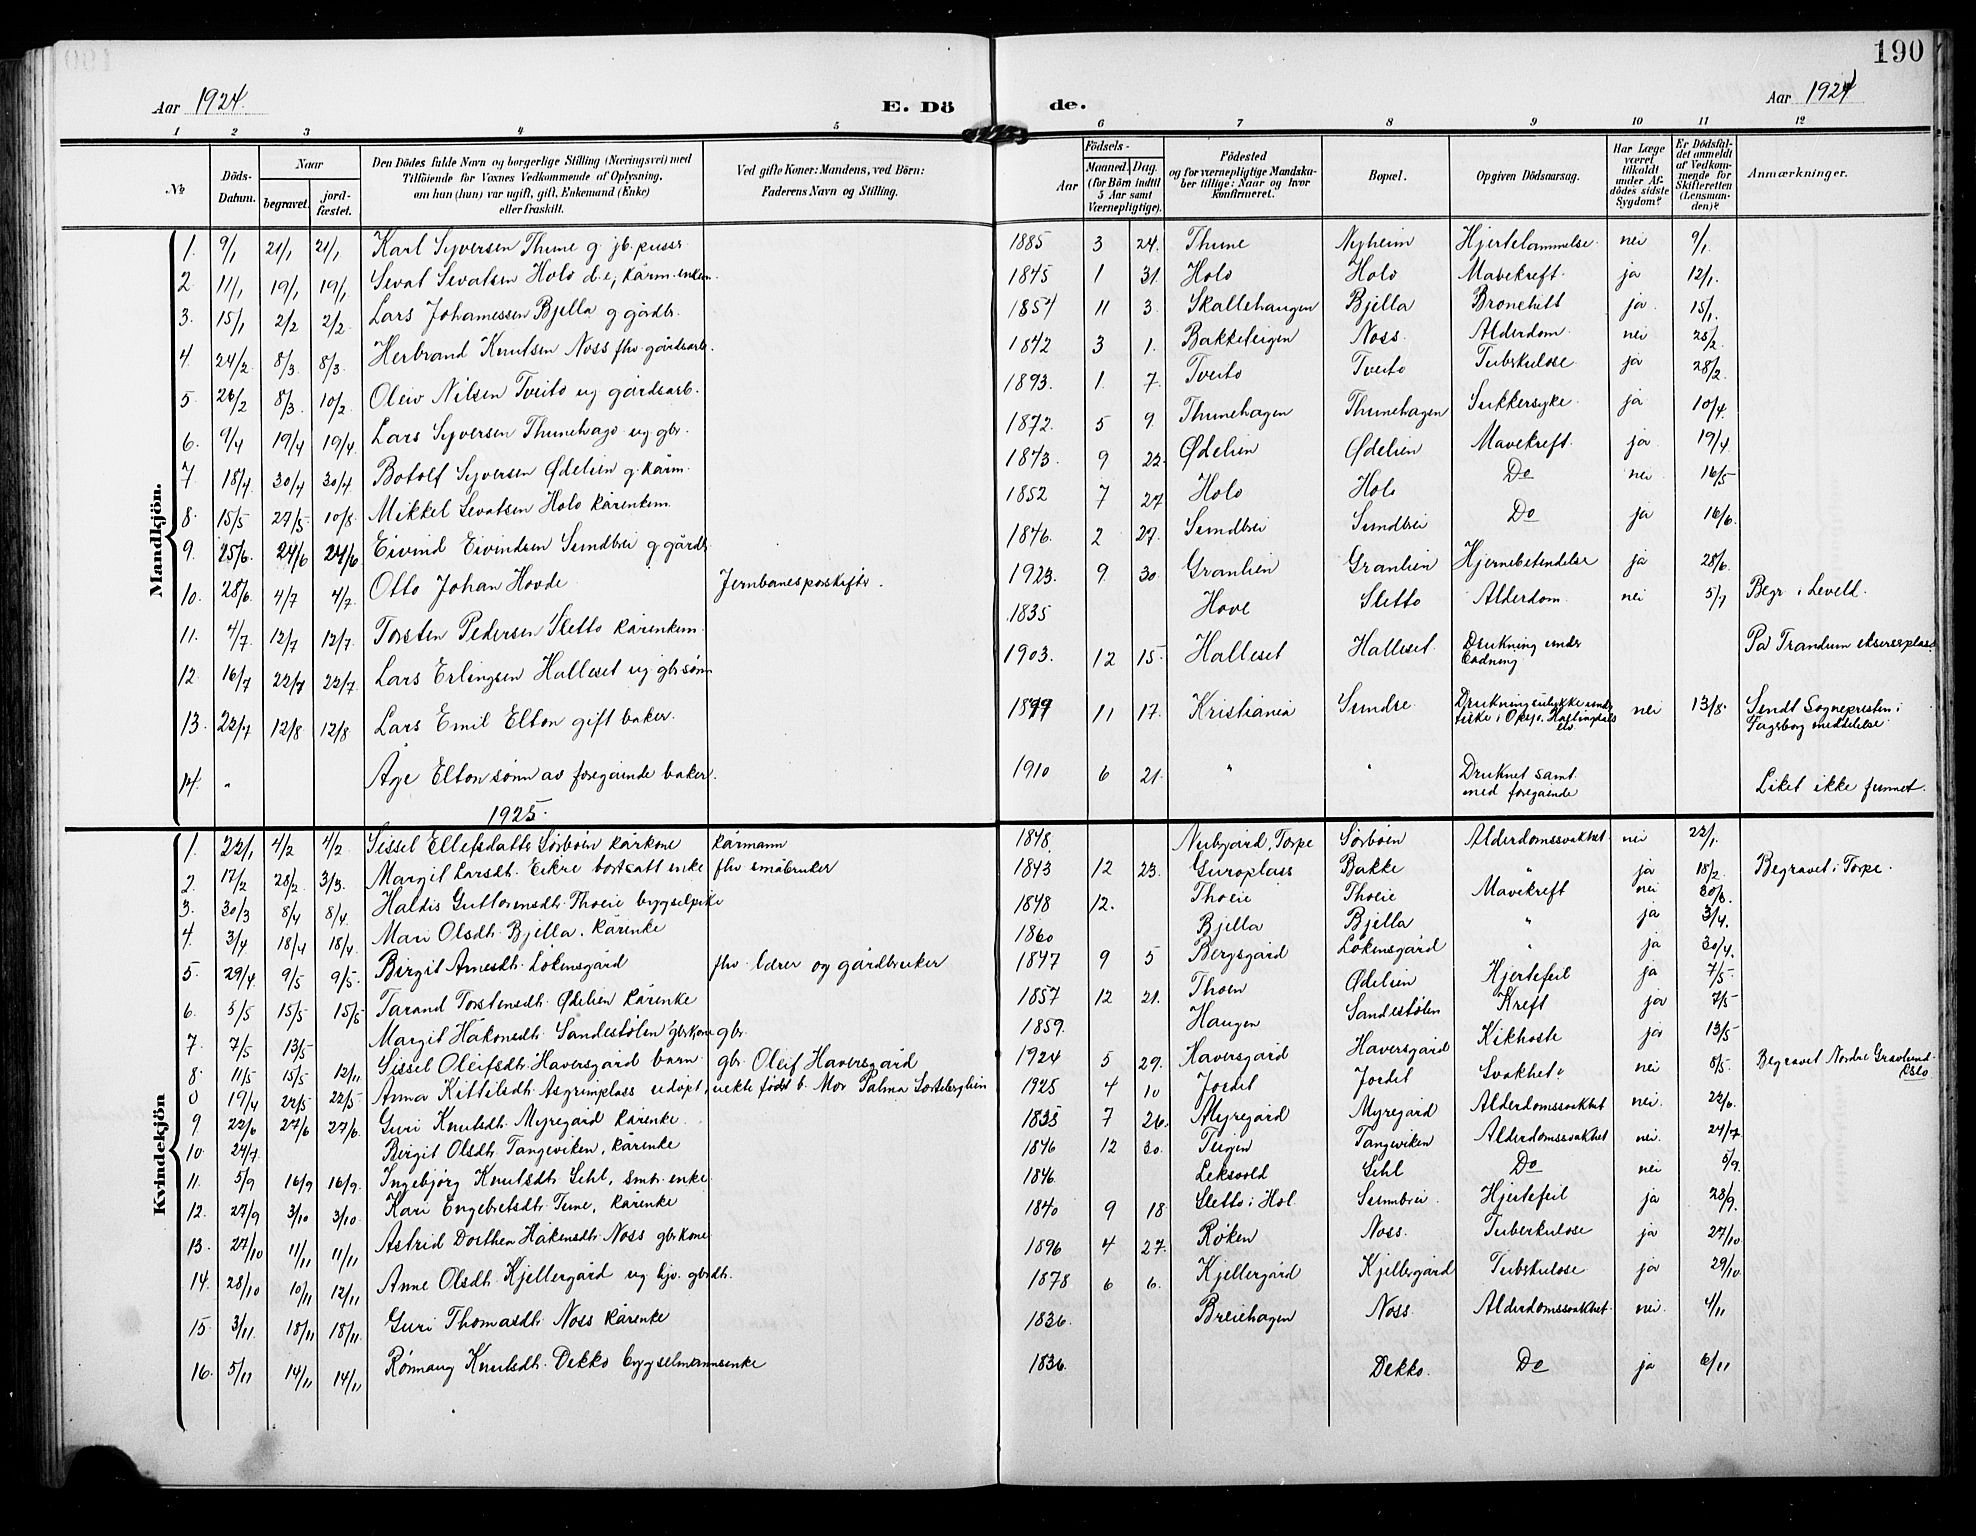 190
Aar 1924.
E. Dö de.
Aar 1924
1 2 3 4 5 6 7 8 9 10 11 12
No
Döds-Datum.
Naar
begravet.
jord-fæstet.
Den Dödes fulde Navn og borgerlige Stilling (Næringsvei) med Tilföiende for Voxnes Vedkommende af Oplysning, om hun (hun) var ugift, gift, Enkemand (Enke) eller fraskilt.
Ved gifte Koner: Mandens, ved Börn: Faderens Navn og Stilling.
Födsels-
Aar
Maaned. Dag.
(for Börn indtil 5 Aar samt Værnepligtige).
Födested og for værnepligtige Mandskaber tillige: Naar og hvor konfirmeret.
Bopæl.
Opgiven Dödsaarsag.
Har Læge været tilkaldt under Afdödes sidste Sygdom?
Er Dödsfaldet anmeldt af Vedkommende for Skifteretten (Lensmanden)?
Anmærkninger.
Mandkjön.
1. 9/1 21/1 21/1 Karl Syversen Thune g. jb. pusser 1885 3 24. Thune Nyheim Hjertelammelse nei 9/1.
2. 11/1 19/1 19/1 Sevat Sevatsen Holo d.e, kårm. enkem. 1845 1 31. Holo Holo Mavekreft. ja 12/1.
3. 15/1 2/2 2/2 Lars Johannessen Bjella g gårdbr. 1854 11 3. Skallehaugen Bjella Bronchitt ja. 15/1.
4. 24/2 8/3 8/3. Herbrand Knutsen Noss fhv. gårdsarb. 1842 3 1. Bakketeigen Noss. Alderdom. nei 25/2.
5. 26/2 8/3 10/2. Oleiv Nilsen Tveito ug gårdsarb. 1893. 1. 7. Tveito Tveito Tubskulose ja 28/2.
6. 9/4 19/4 19/4. Lars Syversen Thunehage ug gbr. 1872. 5 9. Thunehagen Thunehagen Sukkersyke. ja 10/4
7. 18/4 30/4 30/4. Botolf Syversen Ødelien g. kårm. 1873. 9 22. Ødelien Ødelien Mavekreft. ja 19/4
8. 15/5 27/5 10/8. Mikkel Sevatsen Holo kårenkem. 1852 7 27 Holo Holo Do nei 16/5
9. 25/6. 24/6 24/6 Eivind Eivindsen Sundbrei g gårdb. 1846. 2 27. Sundbrei Sundbrei Do ja 16/6.
10. 28/6. 4/7 4/7. Otto Johan Hovde. Jernbanesporskifter. 1923. 9. 30. Granlien Granlien Hjernebetendelse ja 28/6. Begr. i Leveld.
11. 4/7. 12/7 12/7. Torsten Pedersen Sletto kårenkem. 1835 Hove Sletto Alderdom. nei 5/7
12. 16/7 22/7 22/7. Lars Erlingsen Halleset ug gbr sønn 1903. 12 15. Halleset Halleset. Drukning under badning På Trandum ekserserplass.
13. 22/7 12/8 12/8 Lars Emil Elton gift baker. 11 17. Kristiania Sundre nei 13/8. Sendt Sognepresten i Fagerborg meddelelse.
14. " Åge Elton sønn av foregående baker. 1910 6 21. " " Druknet samt. med foregående Liket ikke funnet.
1925.
Kvindekjön
1. 22/1 4/2 4/2 Sissel Ellefsdatter Sørbøen kårkone kårmann 1848. Nubgård, Torpe Sørbøen Alderdomssvakhet. nei 22/1.
2. 17/2 28/2. 3/3. Margit Larsdt. Eikre bortsatt enke fhv småbruker 1843 12 23. Guroplass Bakke " ja 18/2. Begravet i Torpe.
3. 30/3 8/4 8/4. Haldis Guttormsdt. Thoeie bygselpike 1848 12. Thoeie Thoeie Mavekreft nei
4. 3/4 18/4 18/4. Mari Olsdt. Bjella, kårenke 1860 Bjella Bjella " ja 3/4.
5. 29/4 9/5 9/5. Birgit Arnesdt. Løkensgård fhv. lærer og gårdbruker 1847 9 5 Bergsgård Løkensgård " ja 30/4.
6. 5/5 15/5 15/5 Tarand Torstensdt. Ødelien kårenke 1857 12 21. Thoen Ødelien Hjertefeil ja 7/5.
7. 7/5 13/5 Margit Håkonsdt. Sandestølen gbrkone gbr. 1859. Haugen Sandestølen Kreft ja 7/5
8. 11/5 15/5 12/11 Sissel Oleifsdt. Haversgård barn. gbr. Oleif Haversgård 1924 5 29. Haversgård Haversgård Kikhoste ja 13/5
0 19/4 22/5 22/5. Anna Kittilsdt. Asgrimplass udøpt, uekte født b. Mor Palma 1925 4 10 Jordet Jordet Svakhet nei 8/5. Begravet Nordre Gravlund Oslo
9 22/6 27/6 27/6. Guri Knutsdt. Myregård kårenke. 1835 7 26. Myregård Myregård Alderdomssvakhet nei. 22/6.
10. 24/7. Birgit Olsdt. Tangeviken, kårenke 1846 12 30. Teigen Tangeviken Alderdomssvakhet nei. 24/7
11. 5/9 16/9 16/9. Ingebjørg Knutsdt. Gehl, smbr. enke 1846. Leksvold Gehl Do nei 5/9.
12. 27/9 3/10 3/10. Kari Engebretsdt. Tune, kårenke 1840 9 18 Sletto i Hol Sundbrei. Hjertefeil ja 28/9.
13. 27/10 11/11 11/11. Astrid Dorthea Håkensdt. Noss gbrkone. 1896 4 27. Røken Noss. Tuberkulose ja 27/10
14. 28/10 10/11 12/11. Anne Olsdt. Kjellergård ug hjv. gbrdt. 1878 6 6. Kjellergård Kjellergård Tubskulose ja 29/10.
15. 3/11. 18/11 18/11. Guri Thomasdt. Noss kårenke 1836. Breiehagen Noss. Alderdomssvakhet. nei. 4/11
16. 5/11 14/11 14/11. Rønnaug Knutsdt. Dekko bygselmannsenke 1836. Dekko. Do ja 6/11